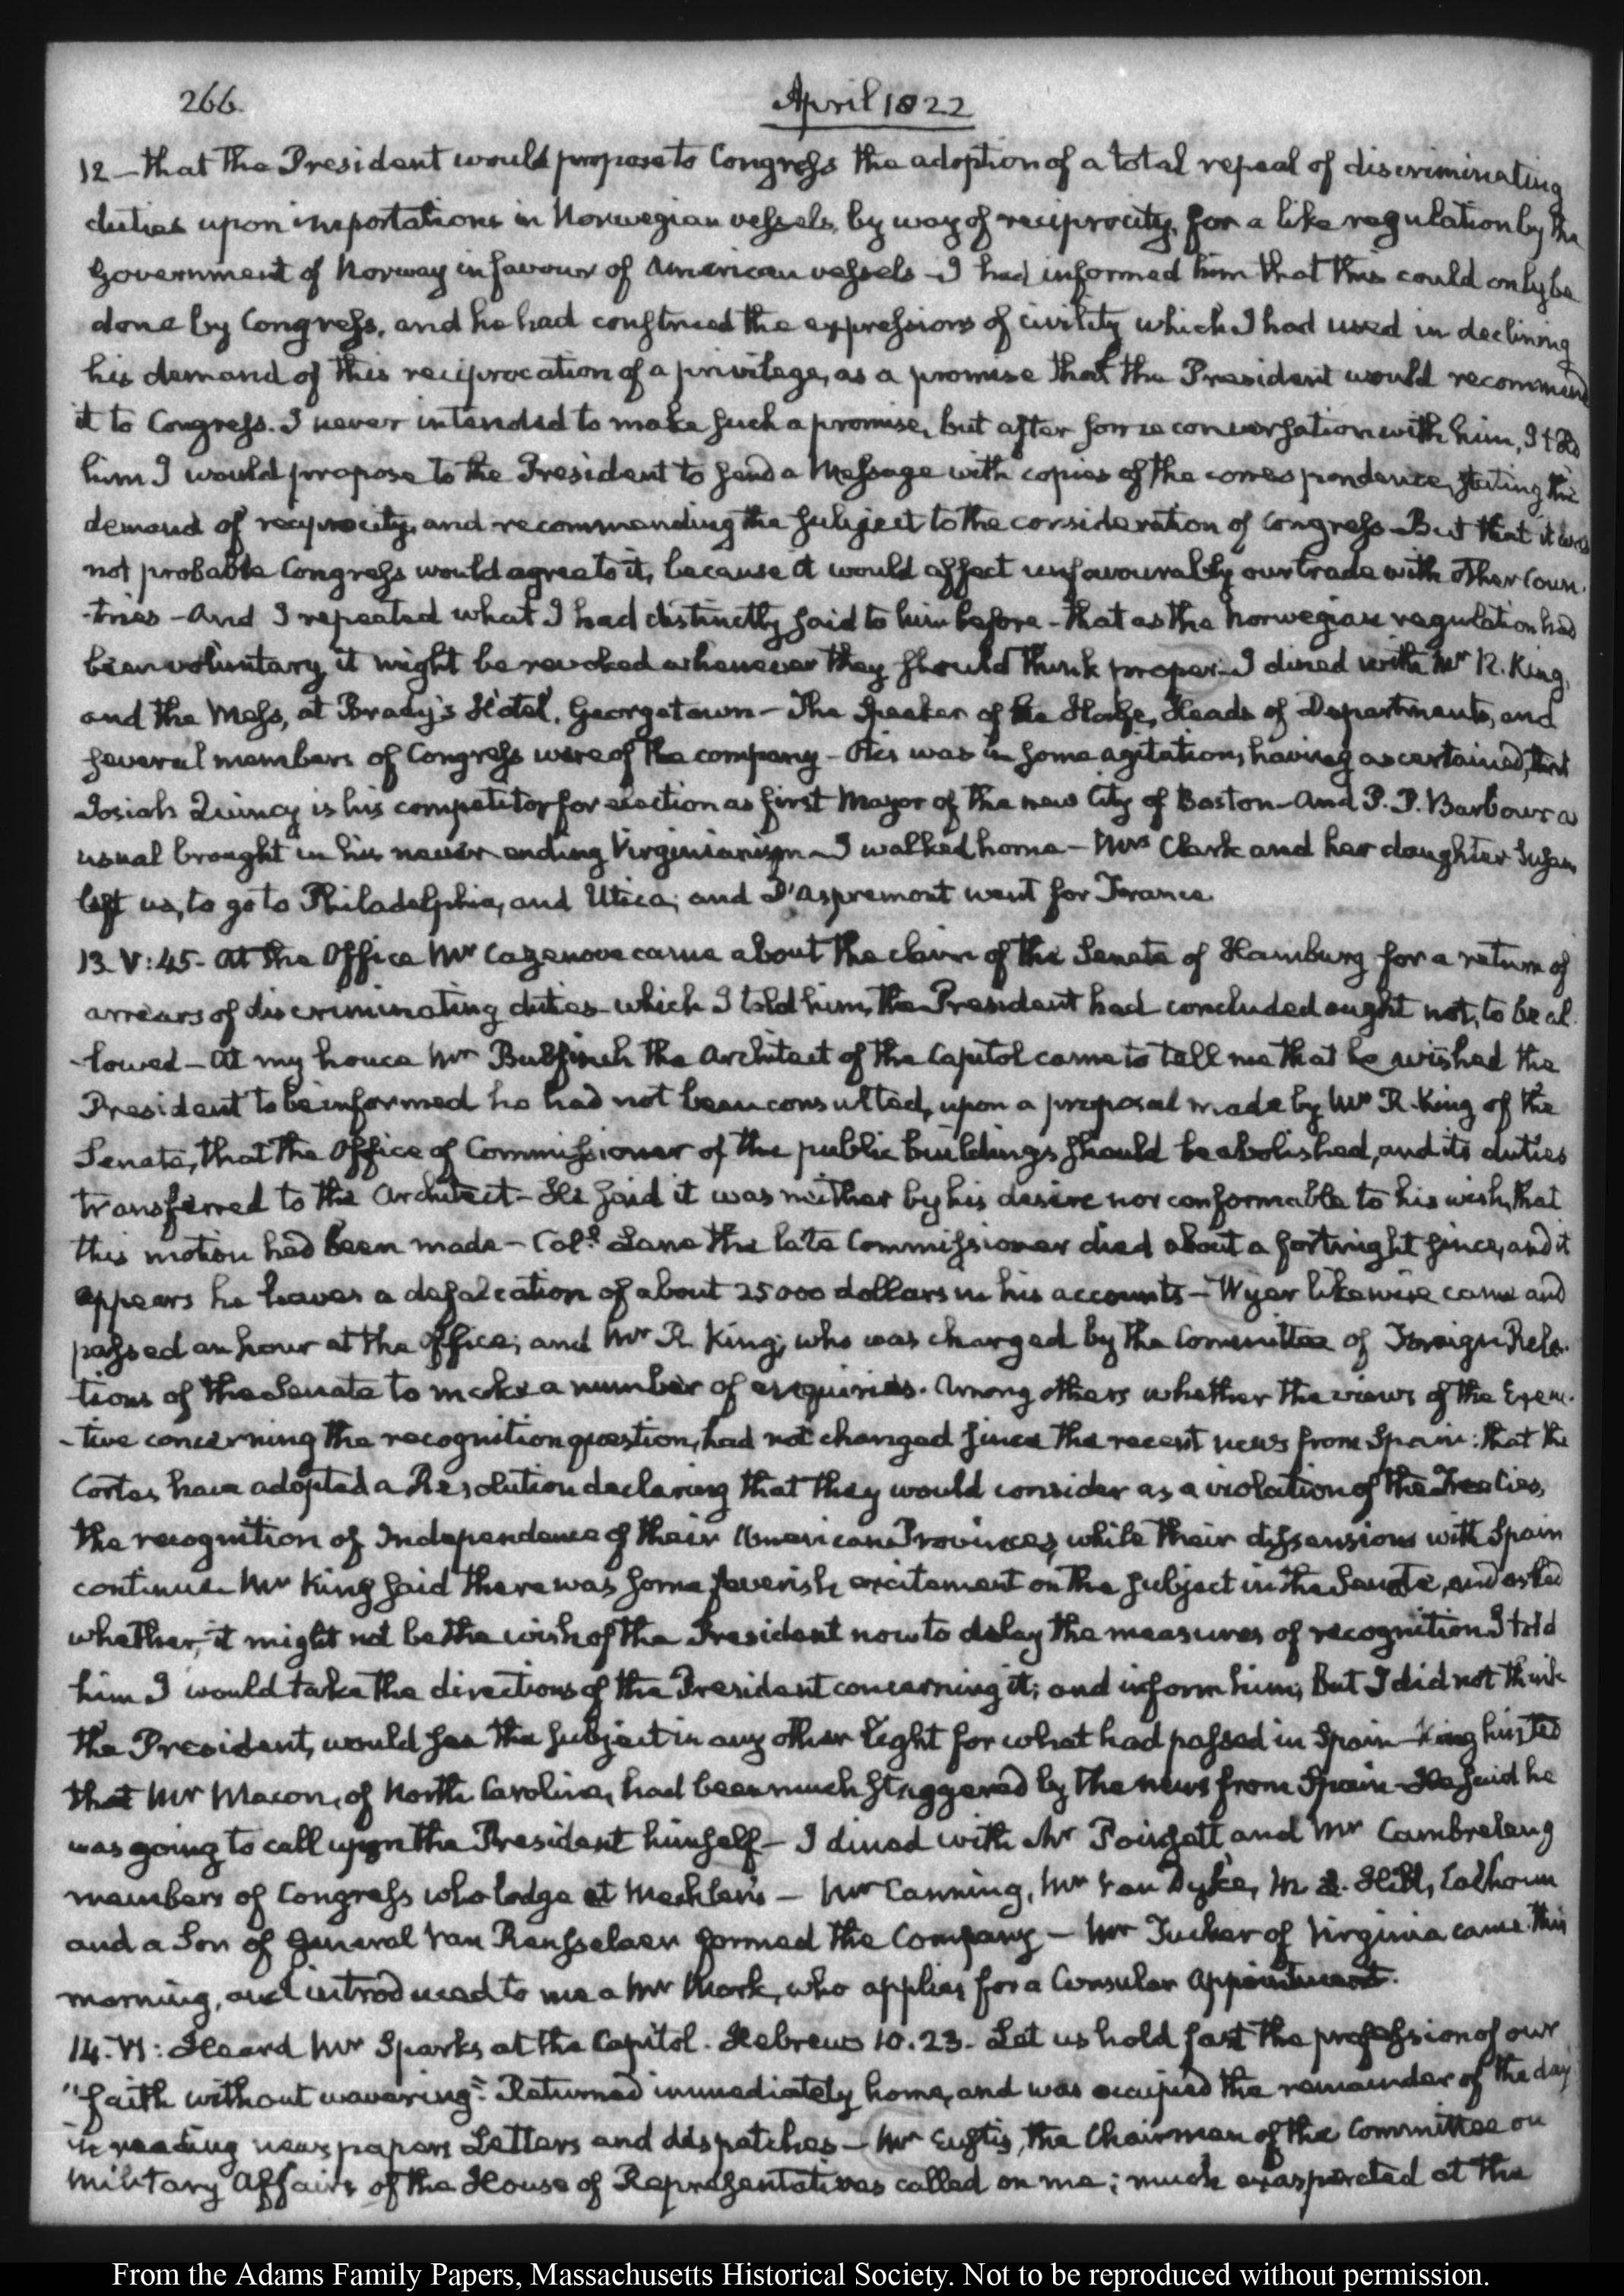 266.
April 1822
12 – that the President would propose to Congress the adoption of a total repeal of discriminating
duties upon importations in Norwegian vessels, by way of reciprocity, for a like regulation by the
Government of Norway in favour of American vessels – I had informed him that this could only be
done by Congress, and he had construed the expressions of civility which I had used in declining
his demand of this reciprocation of a privilege, as a promise that the President would recommend
it to Congress. I never intended to make such a promise, but after some conversation with him, I told
him I would propose to the President to send a Message with copies of the correspondence, stating the
demand of reciprocity, and recommending the subject to the consideration of Congress – But that it was
not probable Congress would agree to it, because it would affect unfavourably our trade with other Coun-
-tries – And I repeated what I had distinctly said to him before – that as the Norwegian regulation had
been voluntary, it might be revoked whenever they should think proper – I dined with Mr R. King,
and the Mess, at Brady's Hotel, Georgetown – The Speaker of the House, Heads of Departments, and
several members of Congress were of the company – Otis was in some agitation, having ascertained, that
Josiah Quincy is his competitor for election as first Mayor of the new City of Boston – And P. P. Barbour as
usual brought in his never ending Virginianism – I walked home – Mrs Clark and her daughter Susan
left us, to go to Philadelphia, and Utica; and D'Aspremont went for France.
13. V:45. At the Office Mr Cazenove came about the claim of the Senate of Hamburg for a return of
arrears of discriminating duties – which I told him, the President had concluded ought not, to be al-
-lowed – At my house Mr Bulfinch the Architect of the Capitol came to tell me that he wished the
President to be informed he had not been consulted, upon a proposal made by Mr R. King of the
Senate, that the Office of Commissioner of the public buildings should be abolished, and its duties
transferred to the Architect – He said it was neither by his desire nor conformable to his wish, that
this motion had been made – Coll. Lane the late Commissioner died about a fortnight since, and it
appears he leaves a defalcation of about 25000 dollars in his accounts – Wyer likewise came and
passed an hour at the Office; and Mr R. King, who was charged by the Committee of Foreign Rela-
tions of the Senate to make a number of enquiries. Among others whether the views of the Execu-
-tive concerning the recognition question, had not changed since the recent news from Spain: that the
Cortes have adopted a Resolution declaring that they would consider as a violation of the Treaties,
the recognition of Independence of their American Provinces, while their dissensions with Spain
continue. Mr King said there was some feverish excitement on the subject in the Senate, and asked
whether, it might not be the wish of the President now to delay the measures of recognition I told
him I would take the directions of the President concerning it; and inform him; But I did not think
the President, would see the subject in any other light for what had passed in Spain – King hinted
that Mr Macon, of North Carolina, had been much staggered by the news from Spain – He said he
was going to call upon the President himself – I dined with Mr Poinsett and Mr Cambreleng
members of Congress who lodge at Meckler's – Mr Canning, Mr Van Dyke, M. L. Hill, Calhoun
and a Son of General Van Rensselaer formed the Company – Mr Tucker of Virginia came this
morning, and introduced to me a Mr Mork, who applies for a Consular Appointment.
14. VI: Heard Mr Sparks at the Capitol. Hebrews 10.23. Let us hold fast the profession of our
"faith without wavering". Returned immediately home, and was occupied the remainder of the day
in reading newspapers Letters and dispatches – Mr Eustis, the Chairman of the Committee on
Military Affairs of the House of Representatives called on me; much exasperated at the
From the Adams Family Papers, Massachusetts Historical Society. Not to be reproduced without permission.